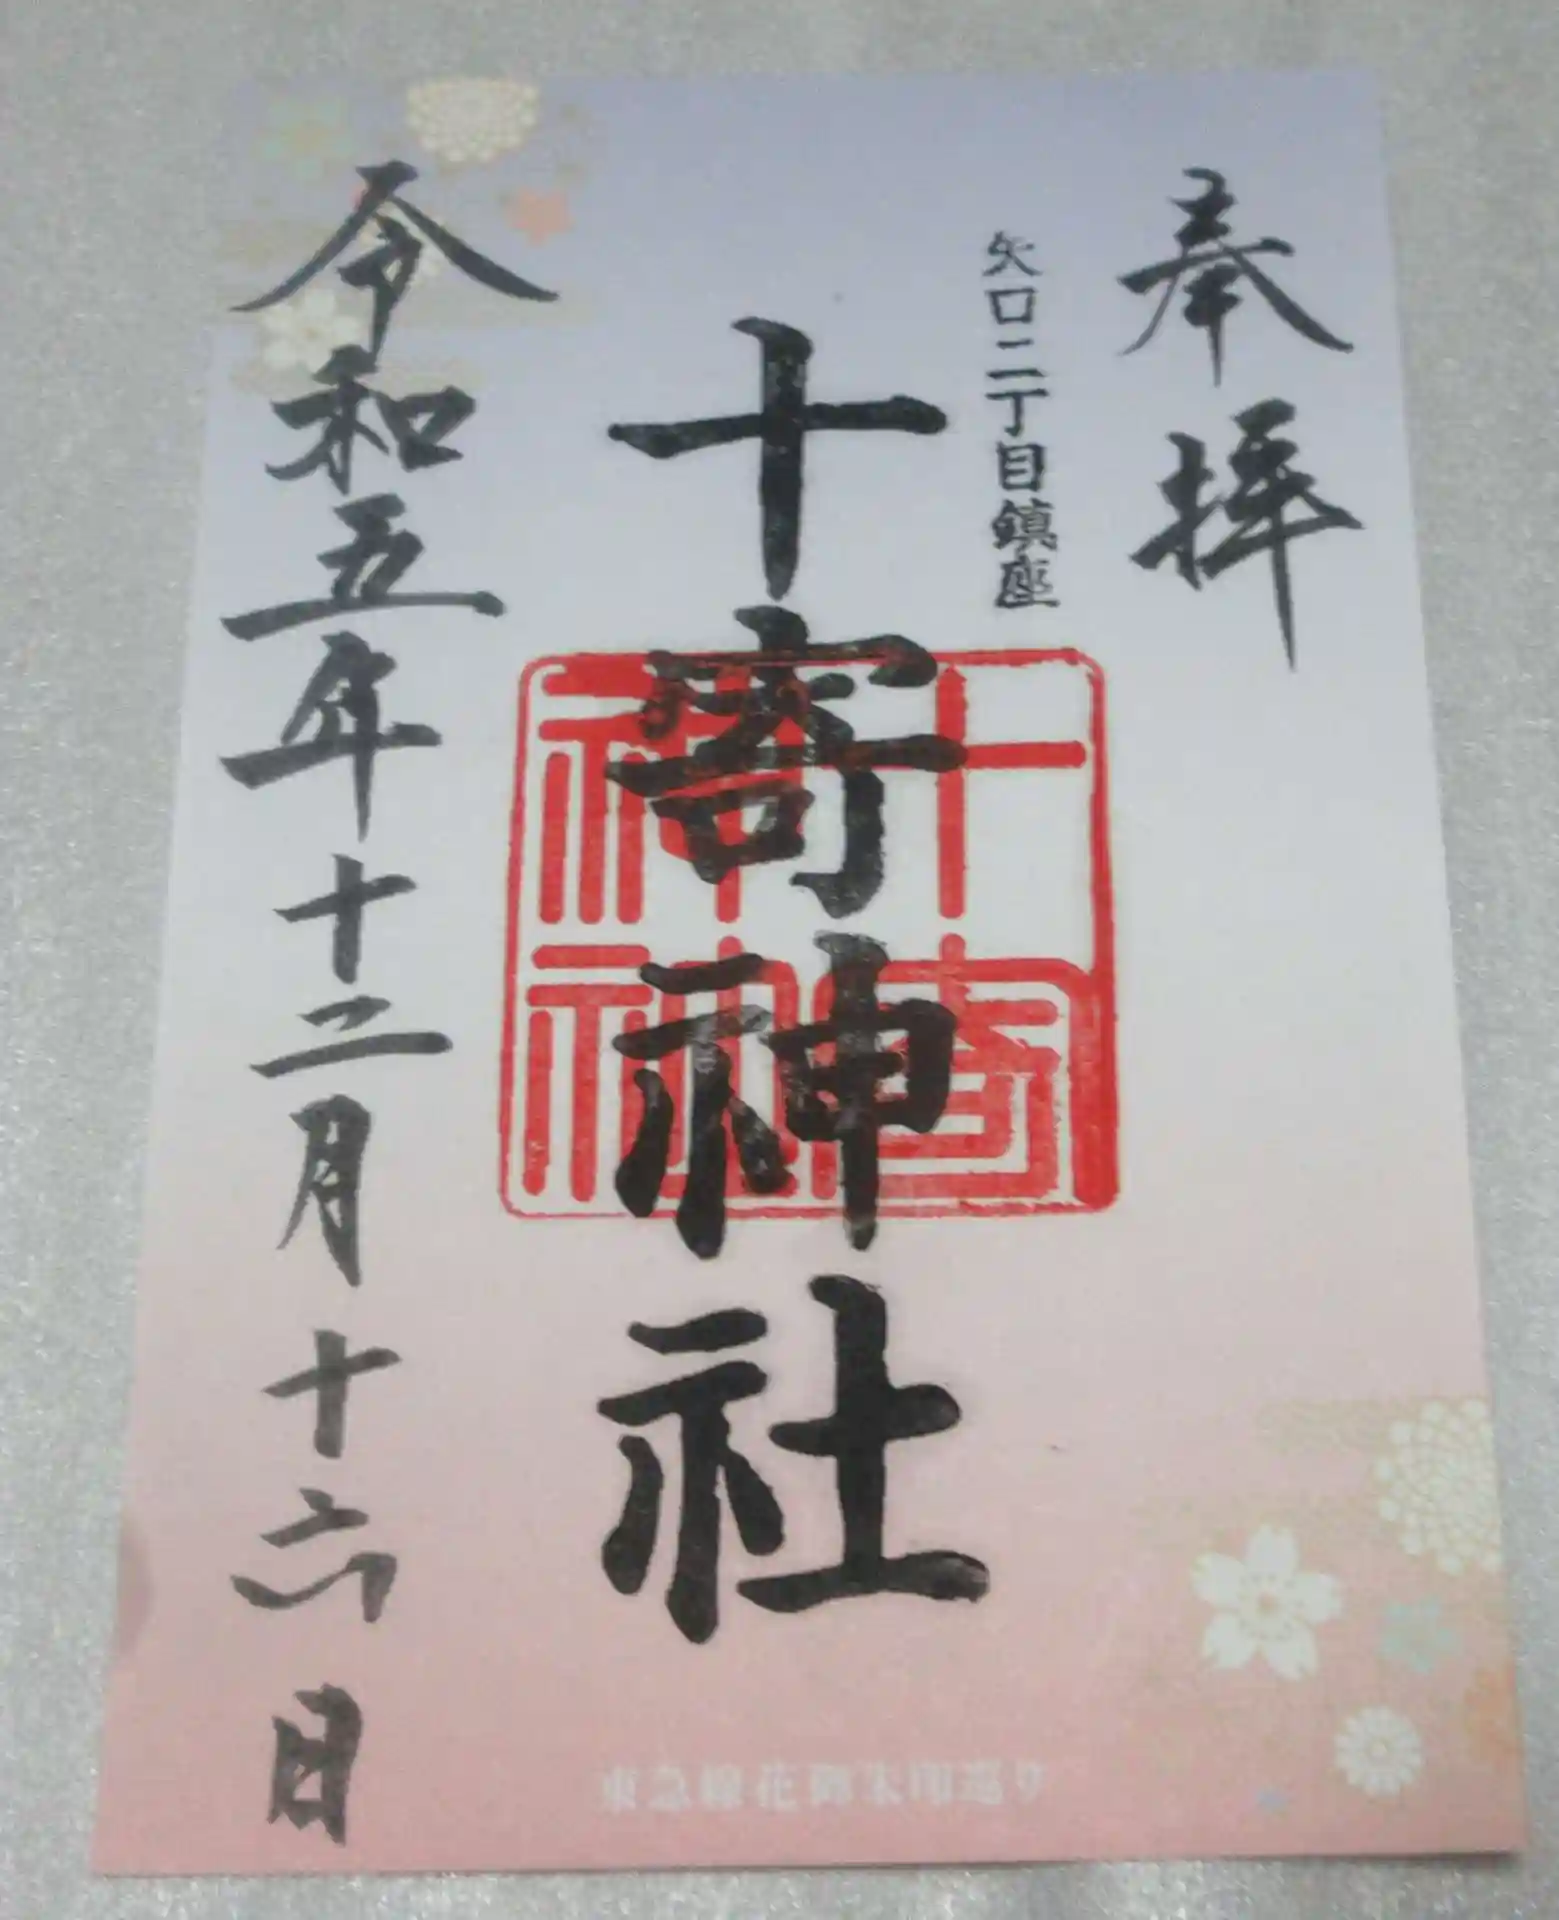 奉拝
矢口二丁目鎮座
十寄神社
十寄神社
令和五年十二月十六日
東急線花御朱印巡り